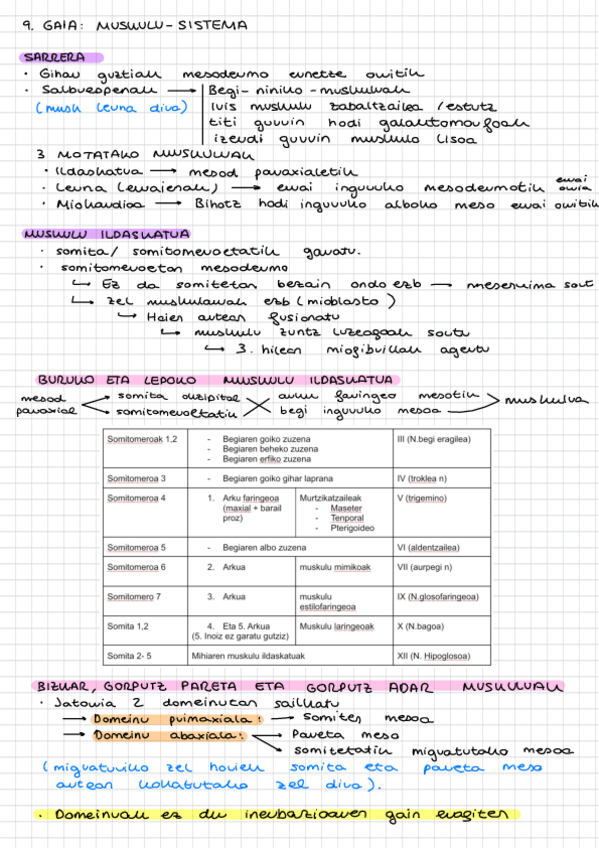 9. GAIA: MUSKULU-SISTEMA
SARRERA
· Gihar guztiak mesodermo euretze dutik
· Salbuespenak → Begi-niniko-muskuluak
(musk leuna dira) iris muskulu zabaltzailea / estutz
titi guruin hodi galaktomorfoak
izerdi guruin muskulo lisoa
3 MOTATAKO MUSKULUAK
· Ildaskatua → mesod paraxialetik
· Leuna (erraienak) → errai inguruko mesodermotik errai
· Miokardioa → Bihotz hodi inguruko alboko meso errai
MUSKULU ILDASKATUA
· somita/ somitomeroetatik garatu.
· somitomeroetan mesodermo
↳ Ez da somitetan bezain ondo ezb → mesenkima sort
↳ zel muskularrak ezb (mioblasto)
↳ Haien artean fusionatu
↳ muskulu zuntz luzeagoak sortu
↳ 3. hilean miofibrillak agertu
BURUKO ETA LEPOKO MUSKULU ILDASKATUA
mesod paraxial somita okzipital arku faringeo mesotik muskulua
somitomeroetatik begi inguruko mesoa
Somitomeroak 1,2 - Begiaren goiko zuzena III (N.begi eragilea)
- Begiaren beheko zuzena
- Begiaren erfiko zuzena
Somitomeroa 3 - Begiaren goiko gihar laprana IV (troklea n)
Somitomeroa 4 1. Arku faringeoa Murtzikatzaileak V (trigemino)
(maxial + barail - Maseter
proz) - Tenporal
- Pterigoideo
Somitomeroa 5 - Begiaren albo zuzena VI (aldentzailea)
Somitomeroa 6 2. Arkua muskulu mimikoak VII (aurpegi n)
Somitomero 7 3. Arkua muskulu IX (N.glosofaringeoa)
estilofaringeoa
Somita 1,2 4. Eta 5. Arkua Muskulu laringeoak X (N.bagoa)
(5. Inoiz ez garatu gutziz)
Somita 2- 5 Mihiaren muskulu ildaskatuak XII (N. Hipoglosoa)
BIZKAR, GORPUTZ PARETA ETA GORPUTZ ADAR MUSKULUAK
· Jatorria 2 domeinutan sailkatu
→ Domeinu primaxiala: → Somiten mesoa
→ Domeinu abaxiala: Pareta meso
somitetatik migratutako mesoa
(migraturiko zel horiek somita eta pareta meso
artean kokatutako zel dira).
· Domeinuak ez du inerbazioaren gain eragiten